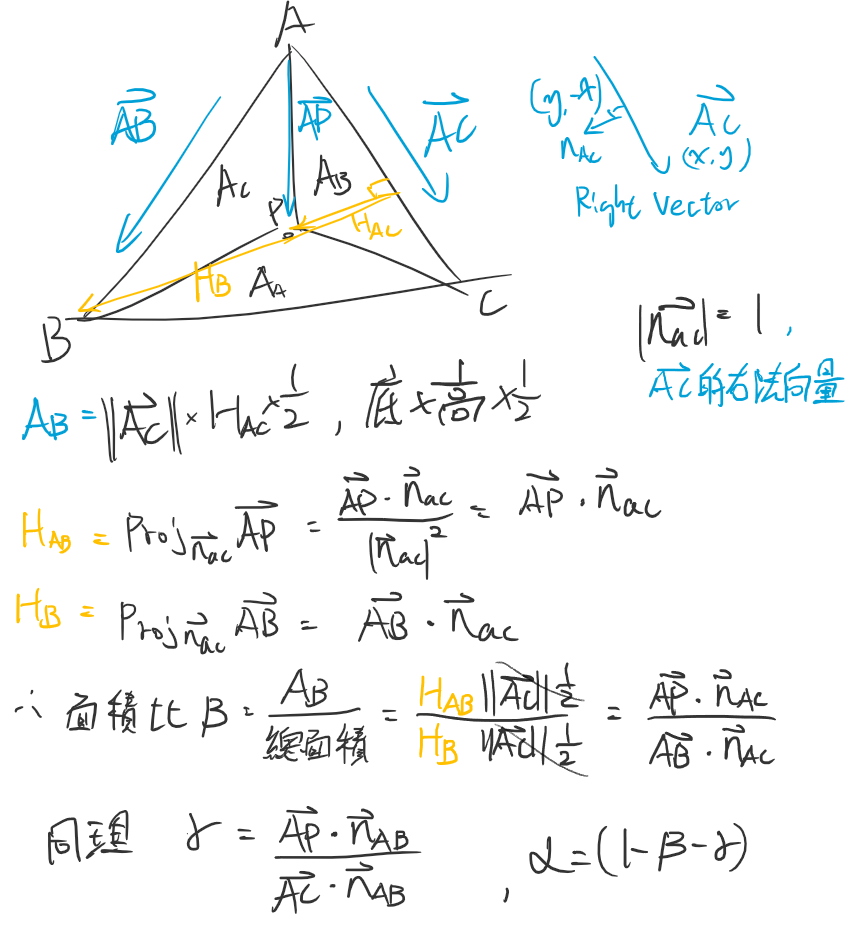 A
AB AP AC
(y,-x) n_AC AC (x,y)
Right Vector
A_C A_B
P
H_AC
H_B A_A
B C
|n_ac| = 1,
AC的右法向量
A_B = ||AC|| × H_AC × 1/2 , 底 × 高 × 1/2
H_AB = Proj_n_ac AP = (AP · n_ac) / |n_ac|² = AP · n_ac
H_B = Proj_n_ac AB = AB · n_ac
∴ 面積比 β = A_B / 總面積 = (H_AB ||AC|| 1/2) / (H_B ||AC|| 1/2) = (AP · n_AC) / (AB · n_AC)
同理 γ = (AP · n_AB) / (AC · n_AB) , α = (1-β-γ)